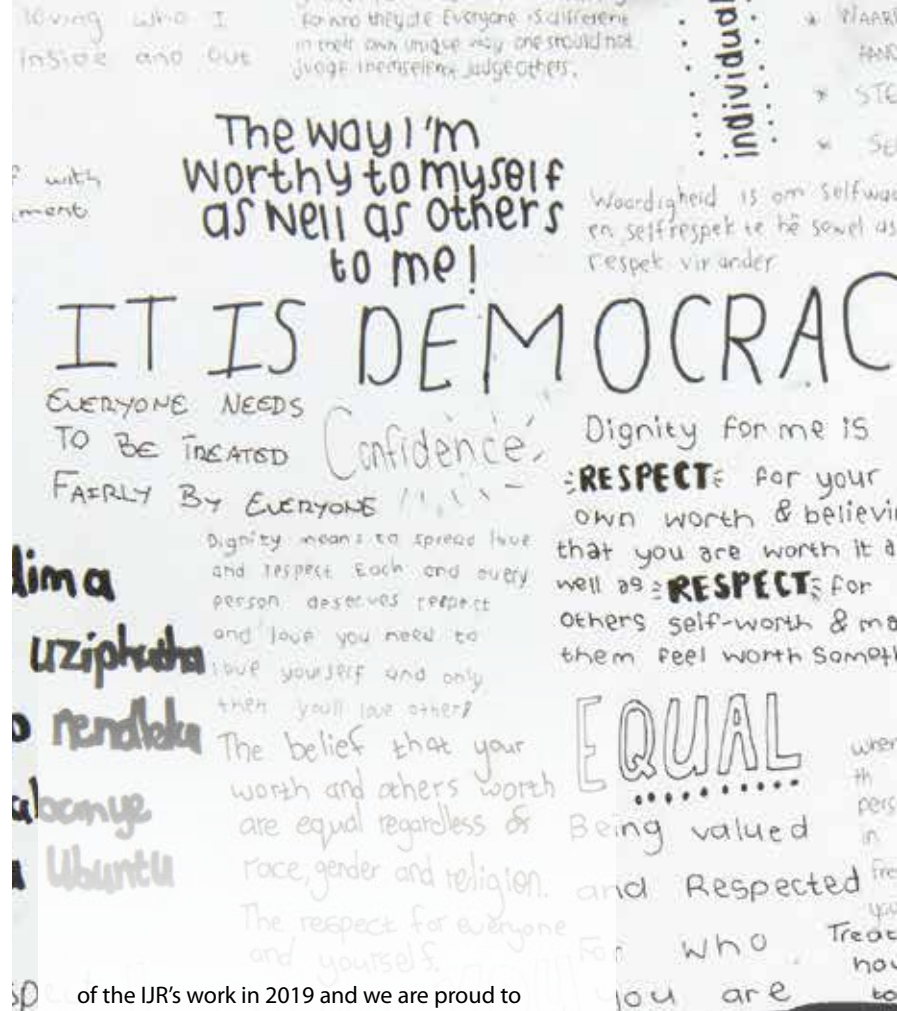 loving who I
inside and out
for who they are Everyone is different
in their own unique way one should not
judge themselves judge others.
individual
WAAR
STE
with
ment
The way I'm
Worthy to myself
as Well as others
to me!
Waardigheid is om selfwaa
en selfrespek te hê sowel as
respek vir ander
IT IS DEMOCRAC
EVERYONE NEEDS
TO BE TREATED
FAIRLY BY EVERYONE
Confidence
Dignity for me is
RESPECT for your
own worth & believin
that you are worth it a
well as RESPECT for
others self-worth & ma
them feel worth Someth
Dignity means to spread love
and respect Each and every
person deserves respect
and love you need to
love yourself and only
then youll love others
dima
uziphatha
Ubuntu
The belief that your
worth and others worth
are equal regardless of
race, gender and religion.
The respect for everyone
and yourself.
EQUAL
Being valued
and Respected
For who
you are
when
th
pers
in
Fre
you
Treat
how
to
of the IJR's work in 2019 and we are proud to